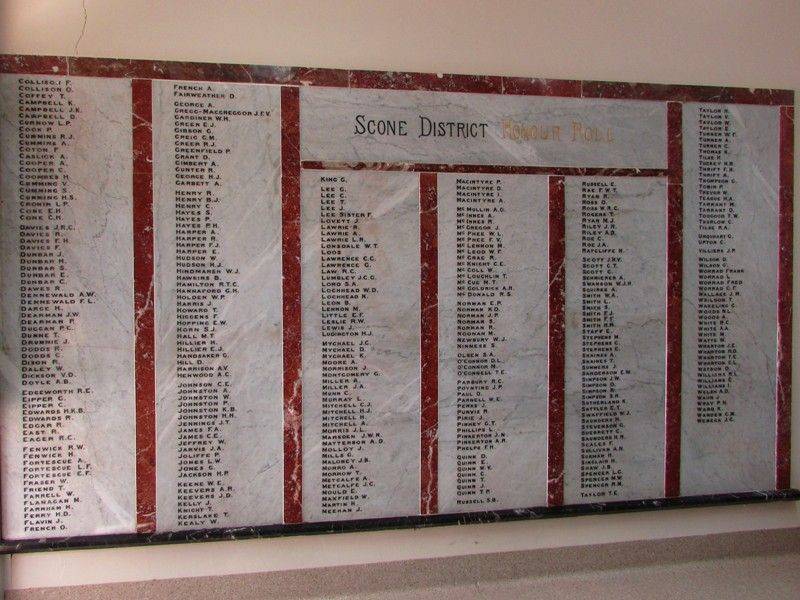 SCONE DISTRICT HONOUR ROLL
COLLISON F.
COLLISON O.
COFFEY T.
CAMPBELL K.
CAMPBELL J.K.
CAMPBELL D.
CURNOW L.P.
COOK P.
CUMMINS R.J.
CUMMINS A.
COTON F.
CASLICK A.
COOPER A.
COOPER C.
COOMBES H.
CUMMING V.
CUMMING S.
CUMMING H.S.
CRONIN L.P.
CONE E.H.
CONE C.H.
DAVIES J.R.C.
DAVIES R.
DAVIES F.H.
DAVIES F.
DUNBAR J.
DUNBAR H.
DUNBAR S.
DUNBAR E.
DUNBAR C.
DAWES R.
DENNEWALD A.W.
DENNEWALD F.L.
DARCE H.
DEARMAN J.W.
DEARMAN P.
DUGGAN P.C.
DUNNE T.
DRUMMIE J.
DODDS R.
DODDS C.
DIXON R.
DALEY W.
DICKSON V.D.
DOYLE A.B.
EDGEWORTH R.E.
EIPPER G.
EIPPER C.
EDWARDS H.K.B.
EDWARDS P.
EDGAR R.
EAST R.
EAGER R.C.
FENWICK R.W.
FENWICK H.
FORTESCUE A.
FORTESCUE L.F.
FORTESCUE E.F.
FRASER W.
FRIEND T.
FARRELL W.
FLANAGAN M.
FARNHAM H.
FERRY H.D.
FLAVIN J.
FRENCH O.
FRENCH A.
FAIRWEATHER D.
GEORGE A.
GREGG-MACGREGGOR J.E.V.
GARDINER W.H.
GREEN E.J.
GIBSON G.
GREIG C.M.
GREER R.J.
GREENFIELD P.
GRANT D.
GIMBERT A.
GUNTER R.
GEORGE H.J.
GARBETT A.
HENRY R.
HENRY B.J.
HENRY C.
HAYES S.
HAYES P.
HAYES P.H.
HARPER A.
HARPER R.
HARPER F.J.
HARPER E.
HUDSON W.
HUDSON H.J.
HINDMARSH W.J.
HAWKINS B.
HAMILTON R.T.C.
HANNAFORD G.H.
HOLDEN W.P.
HARRIS J.
HOWARD T.
HIGGENS F.
HOPPING E.W.
HORN S.J.
HALL M.T.
HILLIER H.
HILLIER E.J.
HANDSAKER G.
HILL D.
HARRISON A.V.
HENWOOD A.C.
JOHNSON C.E.
JOHNSTON A.
JOHNSTON W.
JOHNSTON P.
JOHNSTON K.B.
JOHNSTON H.H.
JENNINGS J.T.
JAMES F.A.
JAMES C.E.
JEFFREY W.
JARVIS J.A.
JOLIFFE P.
JONES L.W.
JONES G.
JACKSON H.P.
KEENE W.E.
KEEVERS A.R.
KEEVERS J.D.
KELLY J.
KNIGHT T.
KERSLAKE T.
KEALY W.
KING G.
LEE G.
LEE C.
LEE T.
LEE J.
LEE SISTER F.
LOVETT J.
LAWRIE R.
LAWRIE A.
LAWRIE L.R.
LONSDALE W.T.
LOOS
LAWRENCE C.C.
LAWRENCE G.
LAW R.C.
LUMBLEY J.C.G.
LORD S.A.
LOCHHEAD W.D.
LOCHHEAD N.
LEON B.
LENNON M.
LITTLE E.F.
LESLIE R.W.
LEWIS J.
LUDINGTON H.J.
MYCHAEL J.C.
MYCHAEL D.
MYCHAEL K.
MOORE A.
MORRISON J.
MONTGOMERY G.
MILLER A.
MILLER J.A.
MUNN C.
MURRAY L.
MITCHELL C.J.
MITCHELL H.J.
MITCHELL H.
MITCHELL A.
MORRIS J.L.
MARSDEN J.W.R.
MATTERSON A.D.
MOLLOY J.
MILLS G.
MALONEY J.B.
MUNRO A.
MORROW T.
METCALFE A.
METCALFE J.C.
MOULD E.
MAXFIELD W.
MARTIN H.
MEEHAN J.
MACINTYRE P.
MACINTYRE D.
MACINTYRE I.
MACINTYRE A.
MC MULLIN A.O.
MC INNES A.
MC INNES R.
MC GREGOR J.
MC PHEE W.L.
MC PHEE F.V.
MC LENNON M.
MC LEOD W.F.
MC CRAE R.
MC KNIGHT C.E.
MC COLL W.
MC LOUGHLIN T.
MC CUE N.T.
MC GOLDRICK A.H.
MC DONALD R.S.
NORMAN E.P.
NORMAN K.O.
NORMAN J.P.
NORMAN T.
NORMAN R.
NOONAN M.
NEWBURY W.J.
NINNESS S.
OLSEN S.A.
O'CONNOR D.L.
O'CONNOR M.
O'CONNELL T.E.
PARBURY R.C.
POYNTING J.P.
PAUL O.
PARNELL W.E.
PERKS J.
PURVIS R.
PIRIE J.
PINKEY G.T.
PHILLIPS L.
PINKERTON J.N.
PINKERTON A.R.
PHELPS F.H.
QUINN D.
QUINN E.
QUINN W.V.
QUINN C.
QUINN T.
QUINN J.
QUINN T.P.
RUSSELL S.B.
RUSSELL E.
RAE F.W.T.
RYAN R.
ROSS D.
ROSS W.R.C.
ROGERS T.
RYAN M.J.
RILEY J.R.
RILEY A.D.
ROE C.
ROE J.A.
RATCLIFFE H.
SCOTT J.R.V.
SCOTT C.T.
SCOTT C.
SCHRIEKER A.
SWANSON W.J.H.
SQUIRES A.
SMITH W.A.
SMITH L.
SMITH C.
SMITH E.J.
SMITH F.T.
SMITH H.H.
STAFF E.
STEPHENS M.
STEPHENS C.
STEPHENS G.
SKAINES A.
SKAINES T.
SUMMERS J.
SANDERSON E.W.
SIMPSON J.W.
SIMPSON D.
SIMPSON R.
SIMPSON S.R.
SUTHERLAND R.
SATTLER E.T.
SWAFFIELD W.J.
SAUNDERS C.
STEVENSON G.
GUERNEY C.
SAUNDERS H.R.
SCALES F.
SULLIVAN A.H.
SURMAN H.
SINCLAIR H.
SHAW J.B.
SPENCER L.C.
SPENCER M.V.
SPENCER R.M.
TAYLOR T.E.
TAYLOR H.
TAYLOR V.
TAYLOR W.
TAYLOR E.
TURNER W.F.
TURNER A.
TURNER C.
THOMAS K.
TILSE F.
THRIFT F.H.
THRIFT A.
THOMPSON G.
TOBIN P.
TREVOR W.
TEAGUE H.A.
TARRANT M.
TARRANT O.
URQUHART G.
UPTON C.
VILLIERS J.P.
WILSON D.
WILSON G.
WORRAD FRANK
WORRAD L.
WORRAD FRED
WORRAD G.T.
WAKELING C.
WOODS N.L.
WOODS A.
WHITE H.C.
WHITE A.
WHITE W.
WILLIAMS C.
WILLIAMS I.
WARD R.
WARREN C.W.